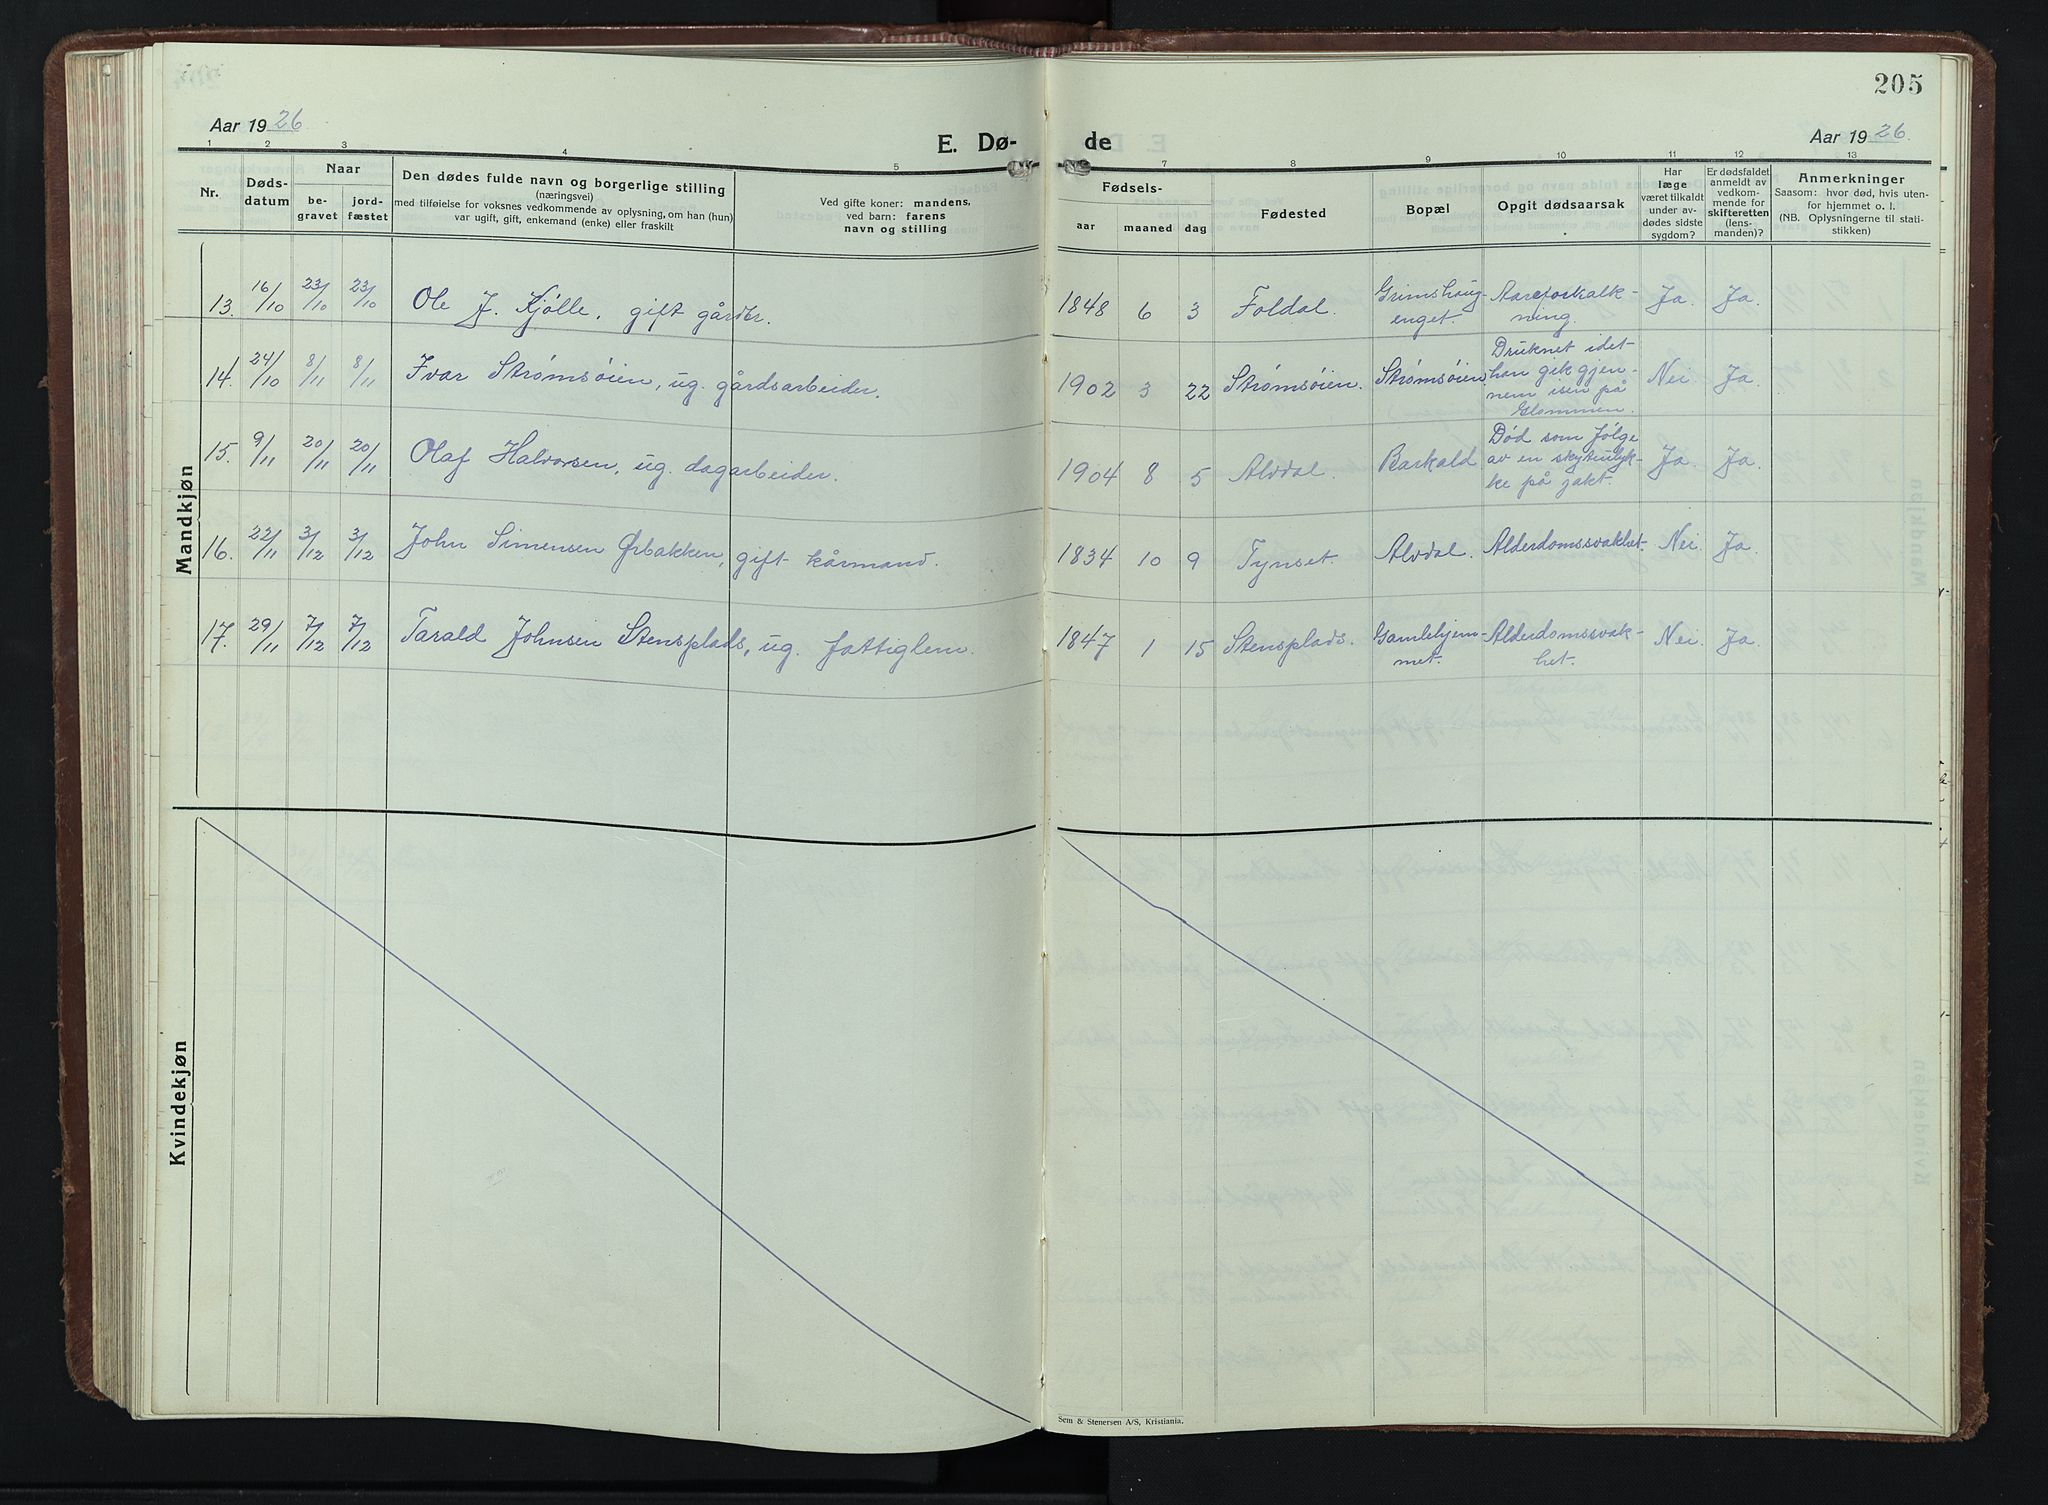 205
Aar 1926
E. Dø-
de
Aar 1926.
1 2 3 4 5 7 8 9 10 11 12 13
Nr.
Døds-
datum
Naar
be-
gravet
jord-
fæstet
Den dødes fulde navn og borgerlige stilling
(næringsvei)
med tilføielse for voksnes vedkommende av oplysning, om han (hun)
var ugift, gift, enkemand (enke) eller fraskilt
Ved gifte koner: mandens,
ved barn: farens
navn og stilling
Fødsels-
aar maaned dag
Fødested
Bopæl
Opgit dødsaarsak
Har
læge
været tilkaldt
under av-
dødes sidste
sygdom?
Er dødsfaldet
anmeldt av
vedkom-
mende for
skifteretten
(lens-
manden)?
Anmerkninger
Saasom: hvor død, hvis uten-
for hjemmet o. l.
(NB. Oplysningerne til stati-
stikken)
Mandkjøn
13. 16/10 23/10 23/10 Ole J. Kjølle, gift gårdbr. 1848 6 3 Foldal. Grimshaug- Aareforkalk- Ja. Ja.
enget. ning.
14. 24/10 8/11 8/11 Ivar Strømsøien, ug. gårdsarbeider. 1902 3 22 Strømsøien. Strømsøien. Druknet idet- Nei Ja.
han gik gjen-
nem isen på
Glommen.
15. 9/11 20/11 20/11 Olaf Halvorsen, ug. dagarbeider. 1904 8 5 Alvdal. Barkald Død som følge Ja. Ja.
av en skyteulyk-
ke på jakt.
16. 22/11 3/12 3/12 John Simensen Ørbakken, gift kårmand. 1834 10 9 Tynset. Alvdal. Alderdomssvakhet. Nei. Ja.
17. 29/11 7/12 7/12 Tarald Johnsen Stensplads, ug. fattiglem. 1847 1 15 Stensplads. Gamlehjem- Alderdomssvak- Nei. Ja.
met. het.
Kvindekjøn
Sem & Stenersen A/S, Kristiania.